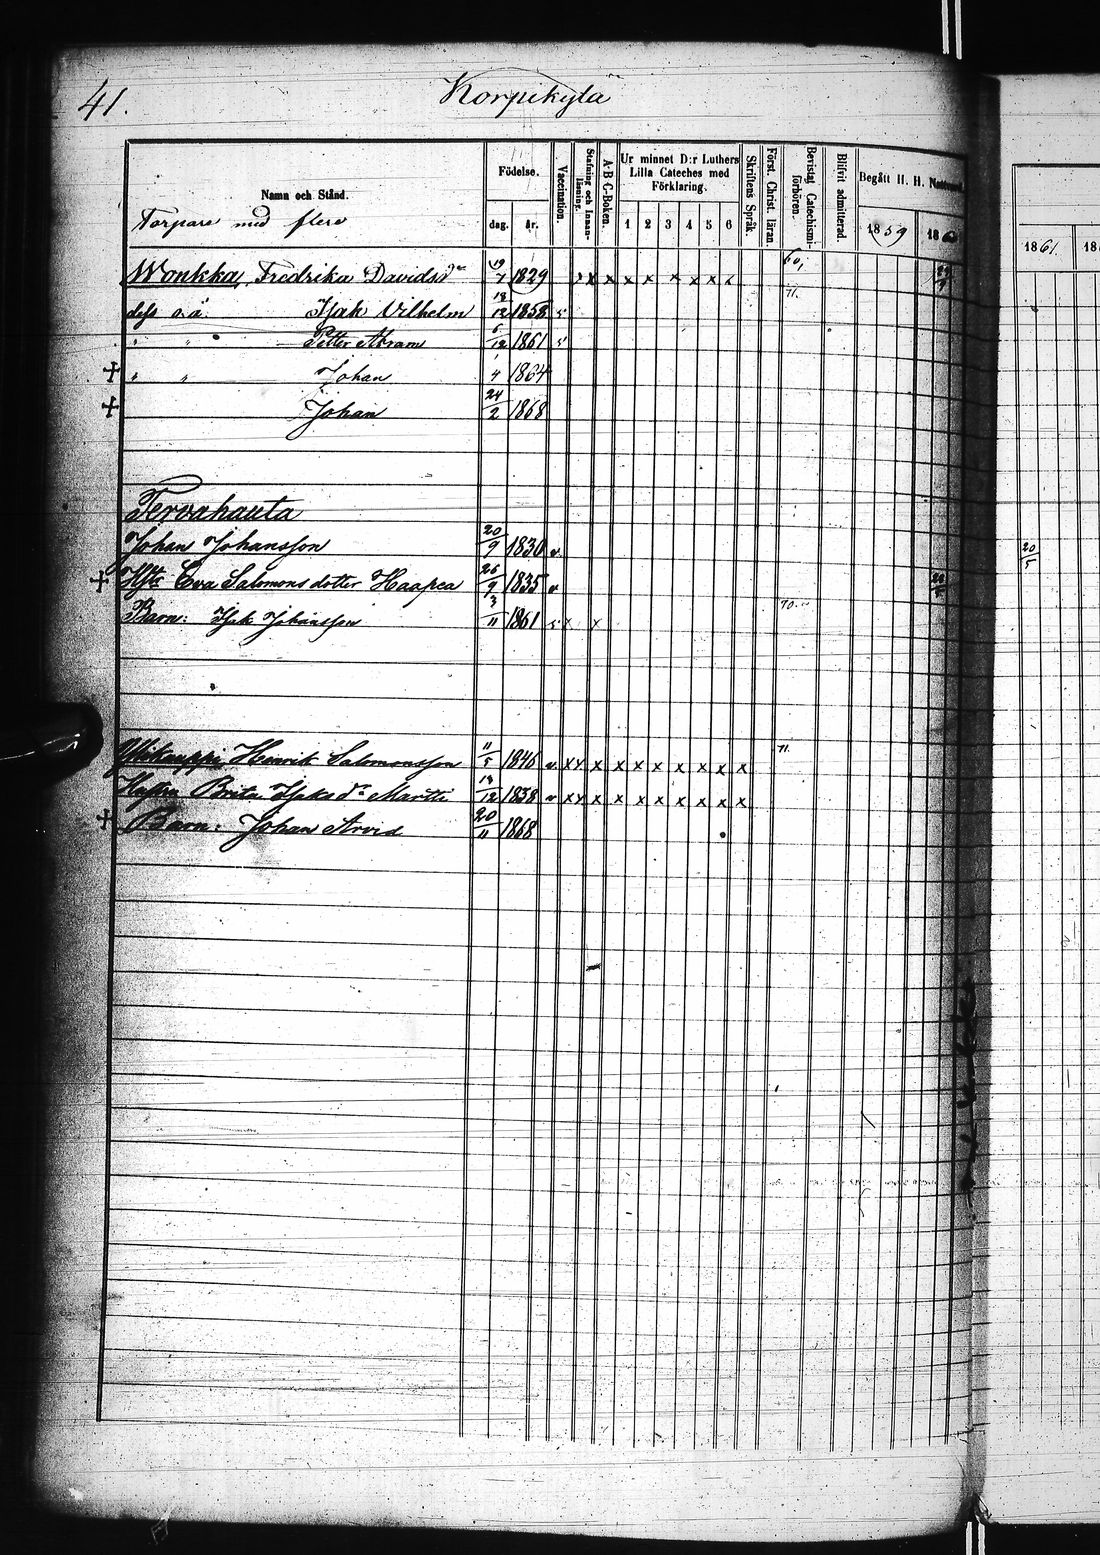 41.
Korpikylä
Namn och Stånd.
Torpare med flere
Födelse.
dag. år.
Vaccination.
Stafning och Innan-läsning.
A-B-C-Boken.
Ur minnet D:r Luthers
Lilla Cateches med
Förklaring.
1 2 3 4 5 6
Skriftens Språk.
Först. Christ. läran.
Bevistat Catechismi-förhören.
Blifvit admitterad.
Begått H. H. Nattvard.
1859
1861.
Wonkka, Fredrika Davidsdr 19/7 1829 x x x x x x x x 60,
dess o.ä. Isak Vilhelm 18/12 1858 71.
" " Petter Abram 6/12 1861
+ " " Johan 1/4 1864
+ Johan 24/2 1868
Tervahauta
Johan Johansson 20/9 1830 v. 20/5
+ Hstr Eva Salomons dotter Haapea 26/9 1835 v
Barn: Isak Johansson 3/11 1861 x x 70.
Henrik Salomonsson 11/5 1846 v. x x x x x x x x x x 71.
Hustru Brita Isaks dr Martti 18/12 1838 v x x x x x x x x x x
+ Barn: Johan Arvid 20/11 1868